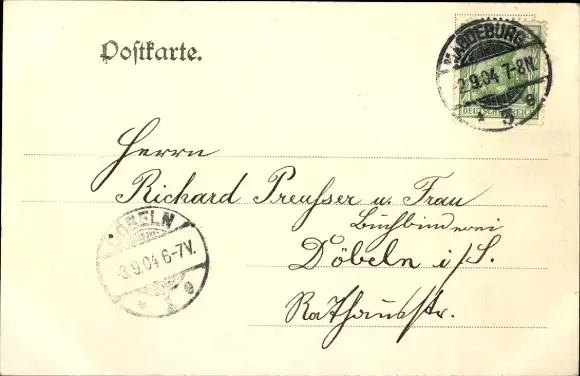 Postkarte.
MAGDEBURG
2.9.04 7-8N.
* 3 e
DEUTSCHES REICH
Herrn
Richard Preusser u. Frau
Buchbinderei
Döbeln i/S.
Rathausstr.
DÖBELN
3.9.04 6-7V.
* 1 e